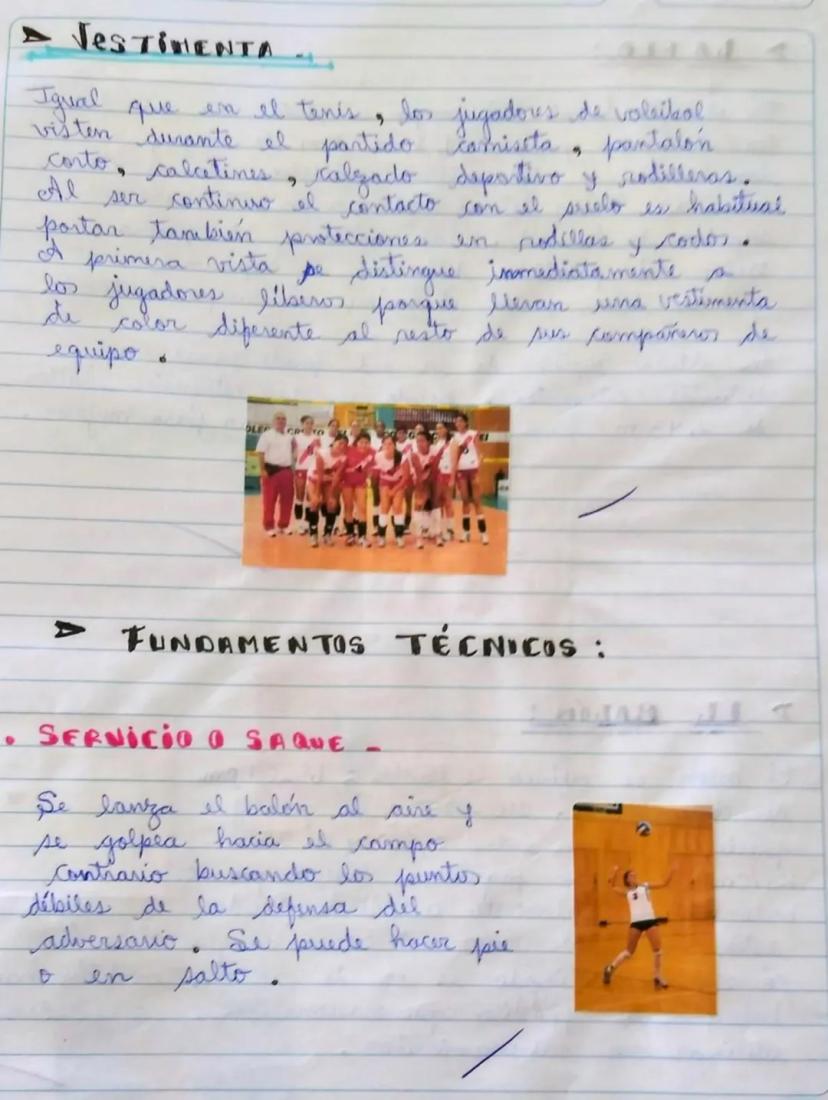 ➤ VESTIMENTA -
Igual que en el tenis, los jugadores de voleibol
visten durante el partido camiseta, pantalón
corto, calcetines, calzado deportivo y rodilleras.
Al ser continuo el contacto con el suelo es habitual
portar también protecciones en rodillas y codos.
A primera vista se distingue inmediatamente a
los jugadores líberos porque llevan una vestimenta
de color diferente al resto de sus compañeros de
equipo.
➤ FUNDAMENTOS TÉCNICOS:
. SERVICIO O SAQUE -
Se lanza el balón al aire y
se golpea hacia el campo
contrario buscando los puntos
débiles de la defensa del
adversario. Se puede hacer pie
o en salto.